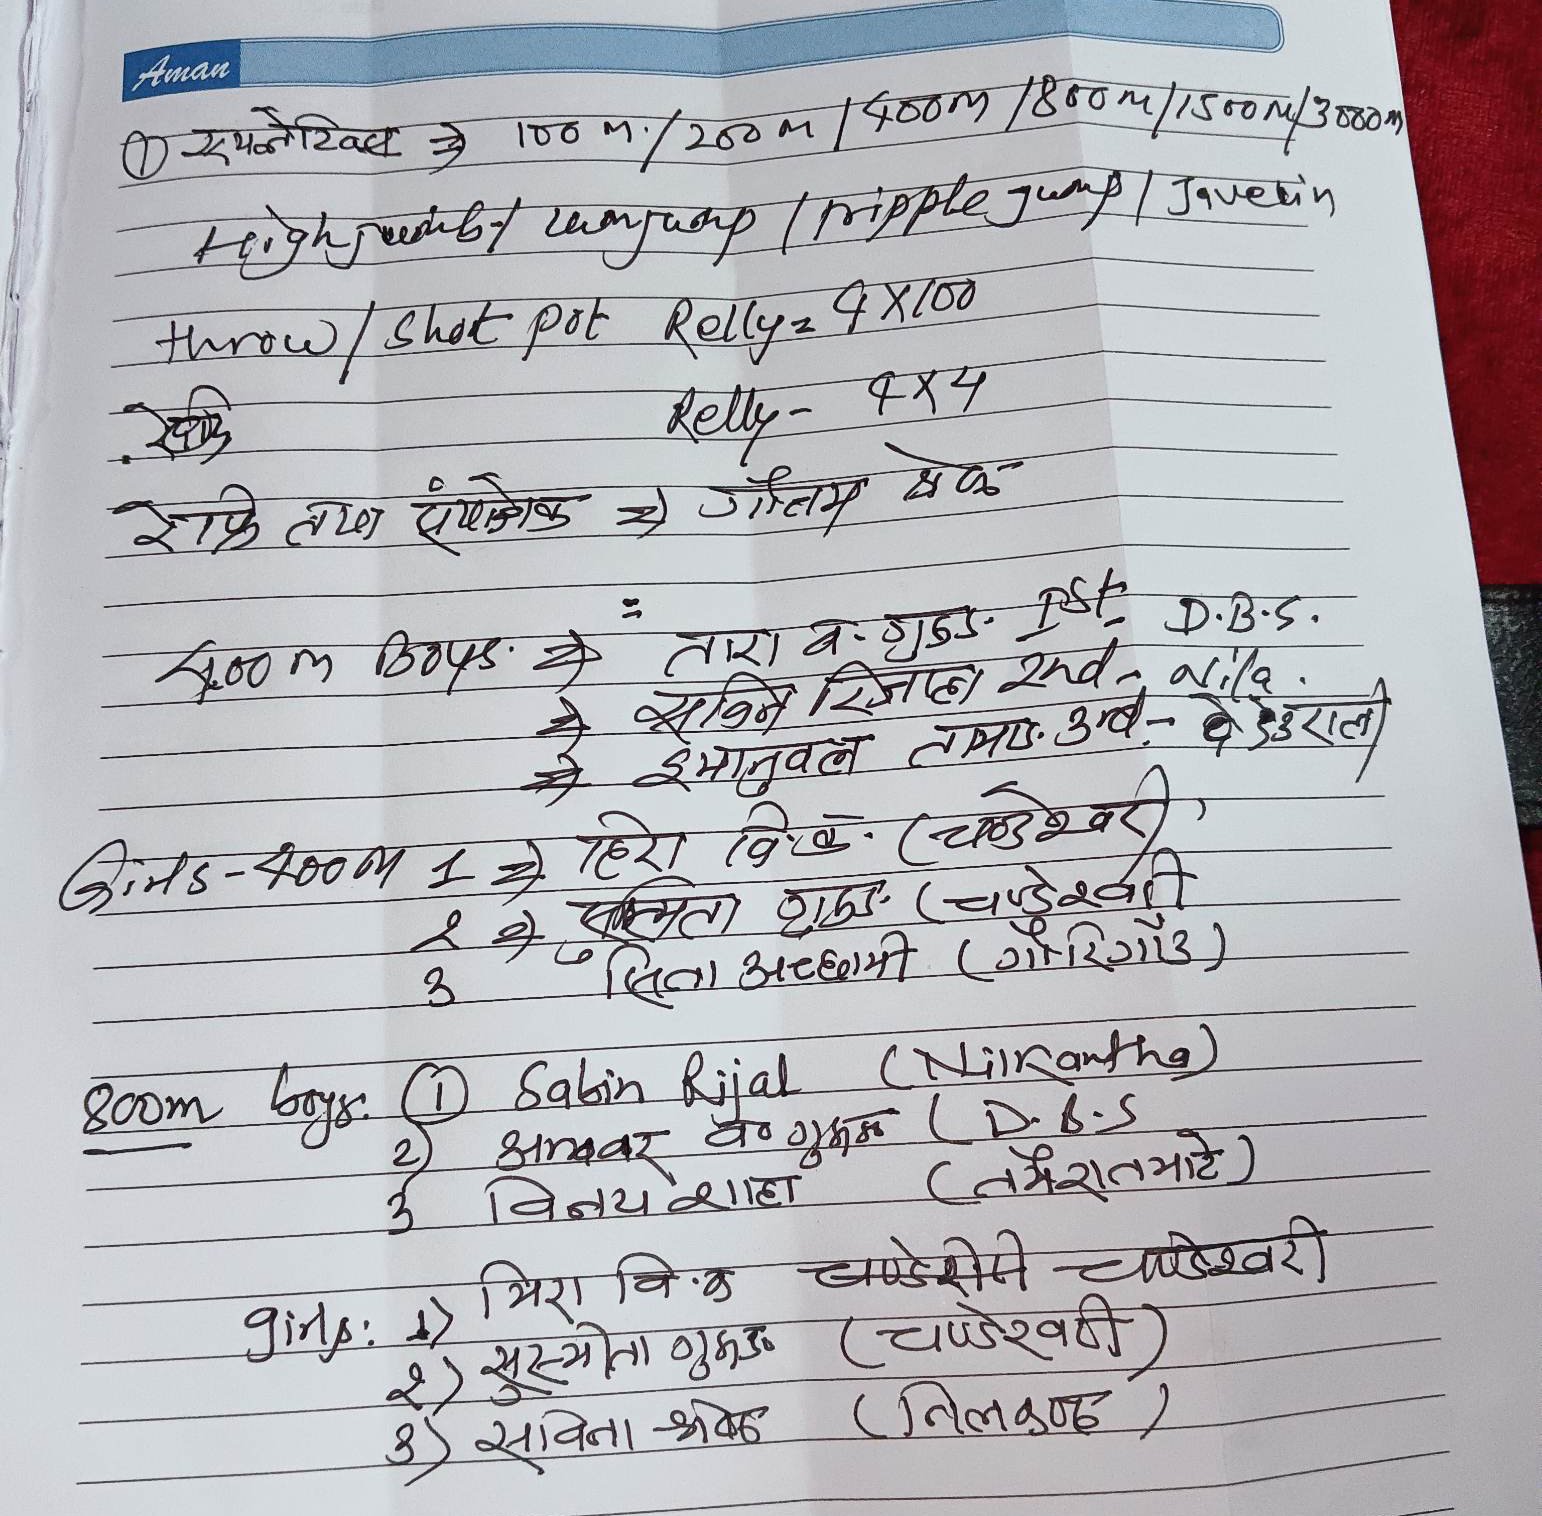 Aman
① एथलेटिक्स → 100 m./200 m/400m/800m/1500m/3000m
Longjump/Tripple jump/Javelin
throw/Shot pot Relly= 4X100
Relly- 4X4
रेफ्रि तथा संयोजक → गौतम
400m Boys. → तारा ब. गुरुङ. Ist. D.B.S.
→ सविन रिजाल 2nd - Nila.
→ इमानुवेल तामाङ. 3rd. -
Girls-400m 1 → हिरा वि.क. (चण्डेश्वरी)
2 → सुस्मिता गुरुङ. (चण्डेश्वरी
3 सिता अच्छामी (गौरिगाँउ)
800m boys. ① Sabin Rijal (Nilkantha)
2) ब० गुरुङ (D.B.S
3 विनय शाही
girls: 1) मिरा वि.क चण्डेश्वरी
2) सुस्मीता गुरुङ (चण्डेश्वरी)
3) सविता (निलकण्ठ)